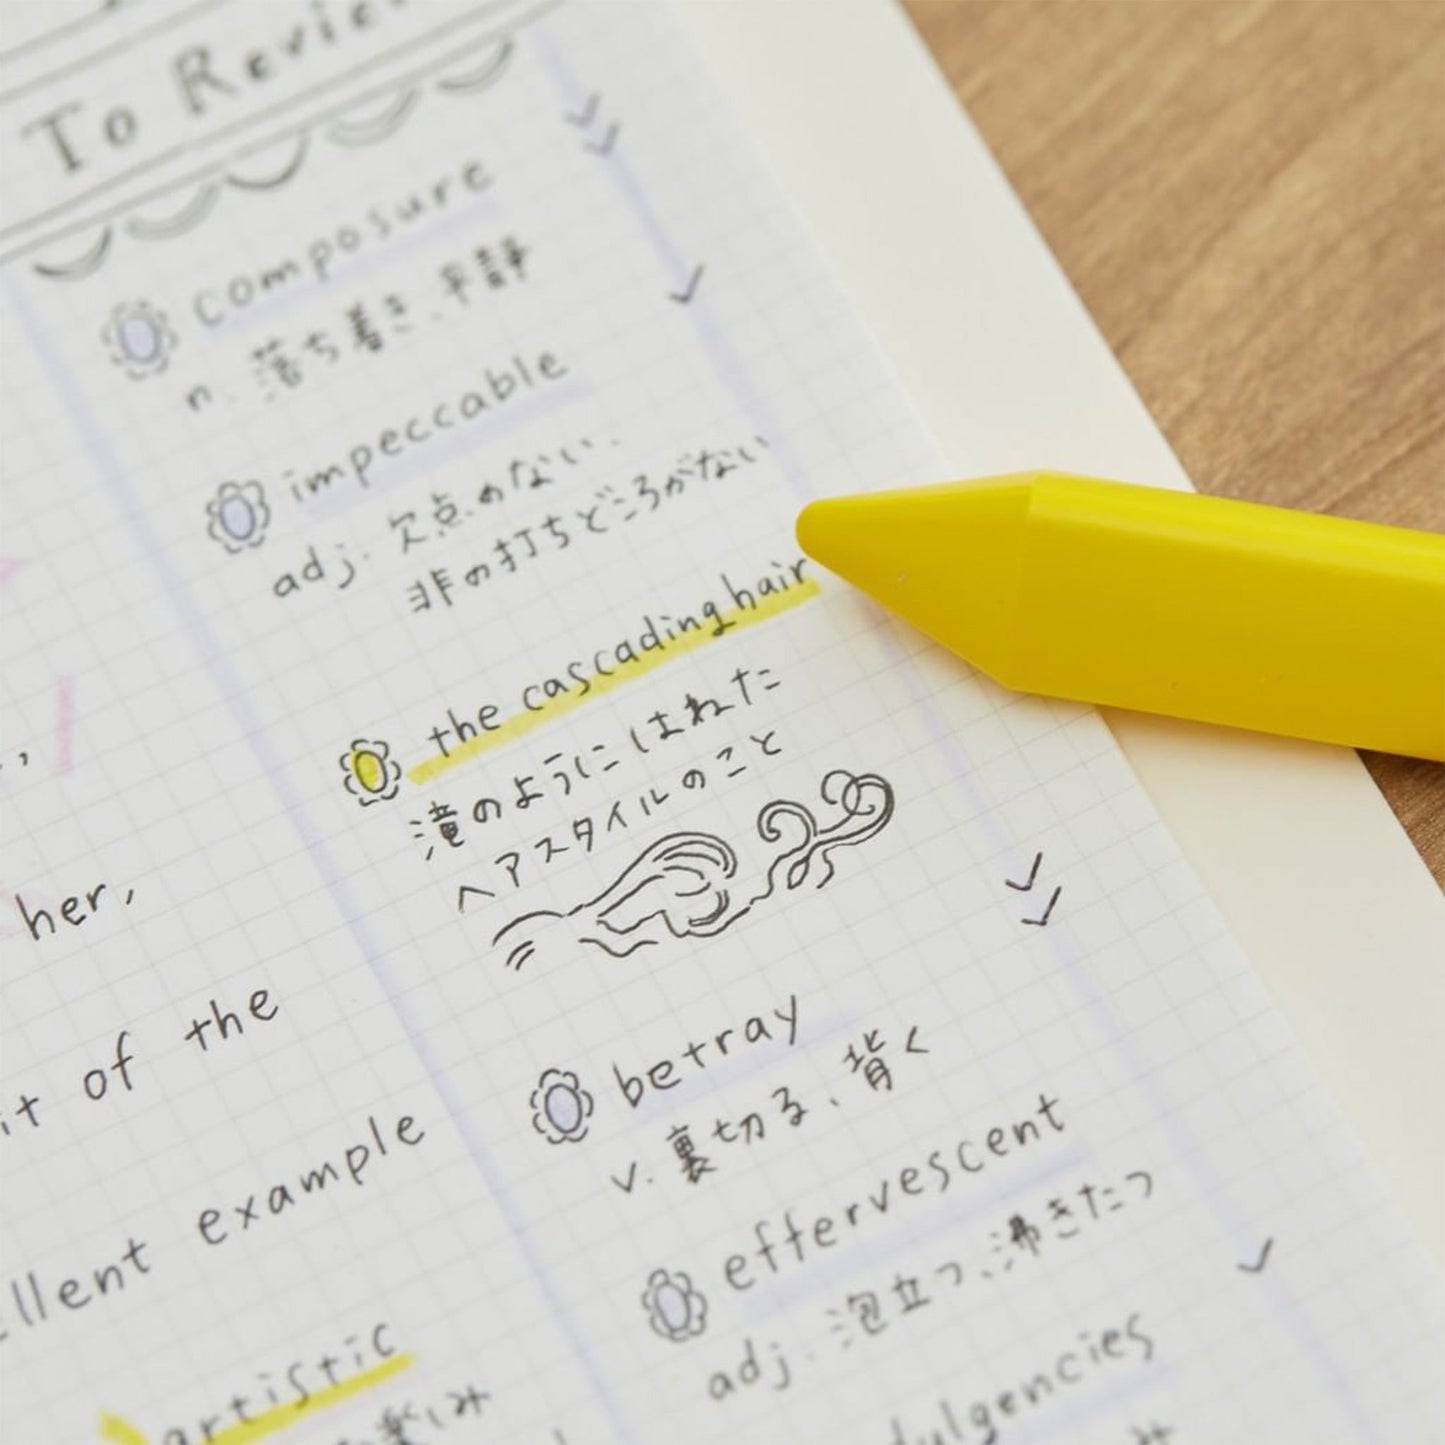 To Review
composure
n. 落ち着き、平静
impeccable
adj. 欠点のない、
非の打ちどころがない
the cascading hair
滝のようにはねた
ヘアスタイルのこと
betray
v. 裏切る、背く
effervescent
adj. 泡立つ、沸きたつ
dulgencies
her,
it of the
llent example
artistic
楽しみ